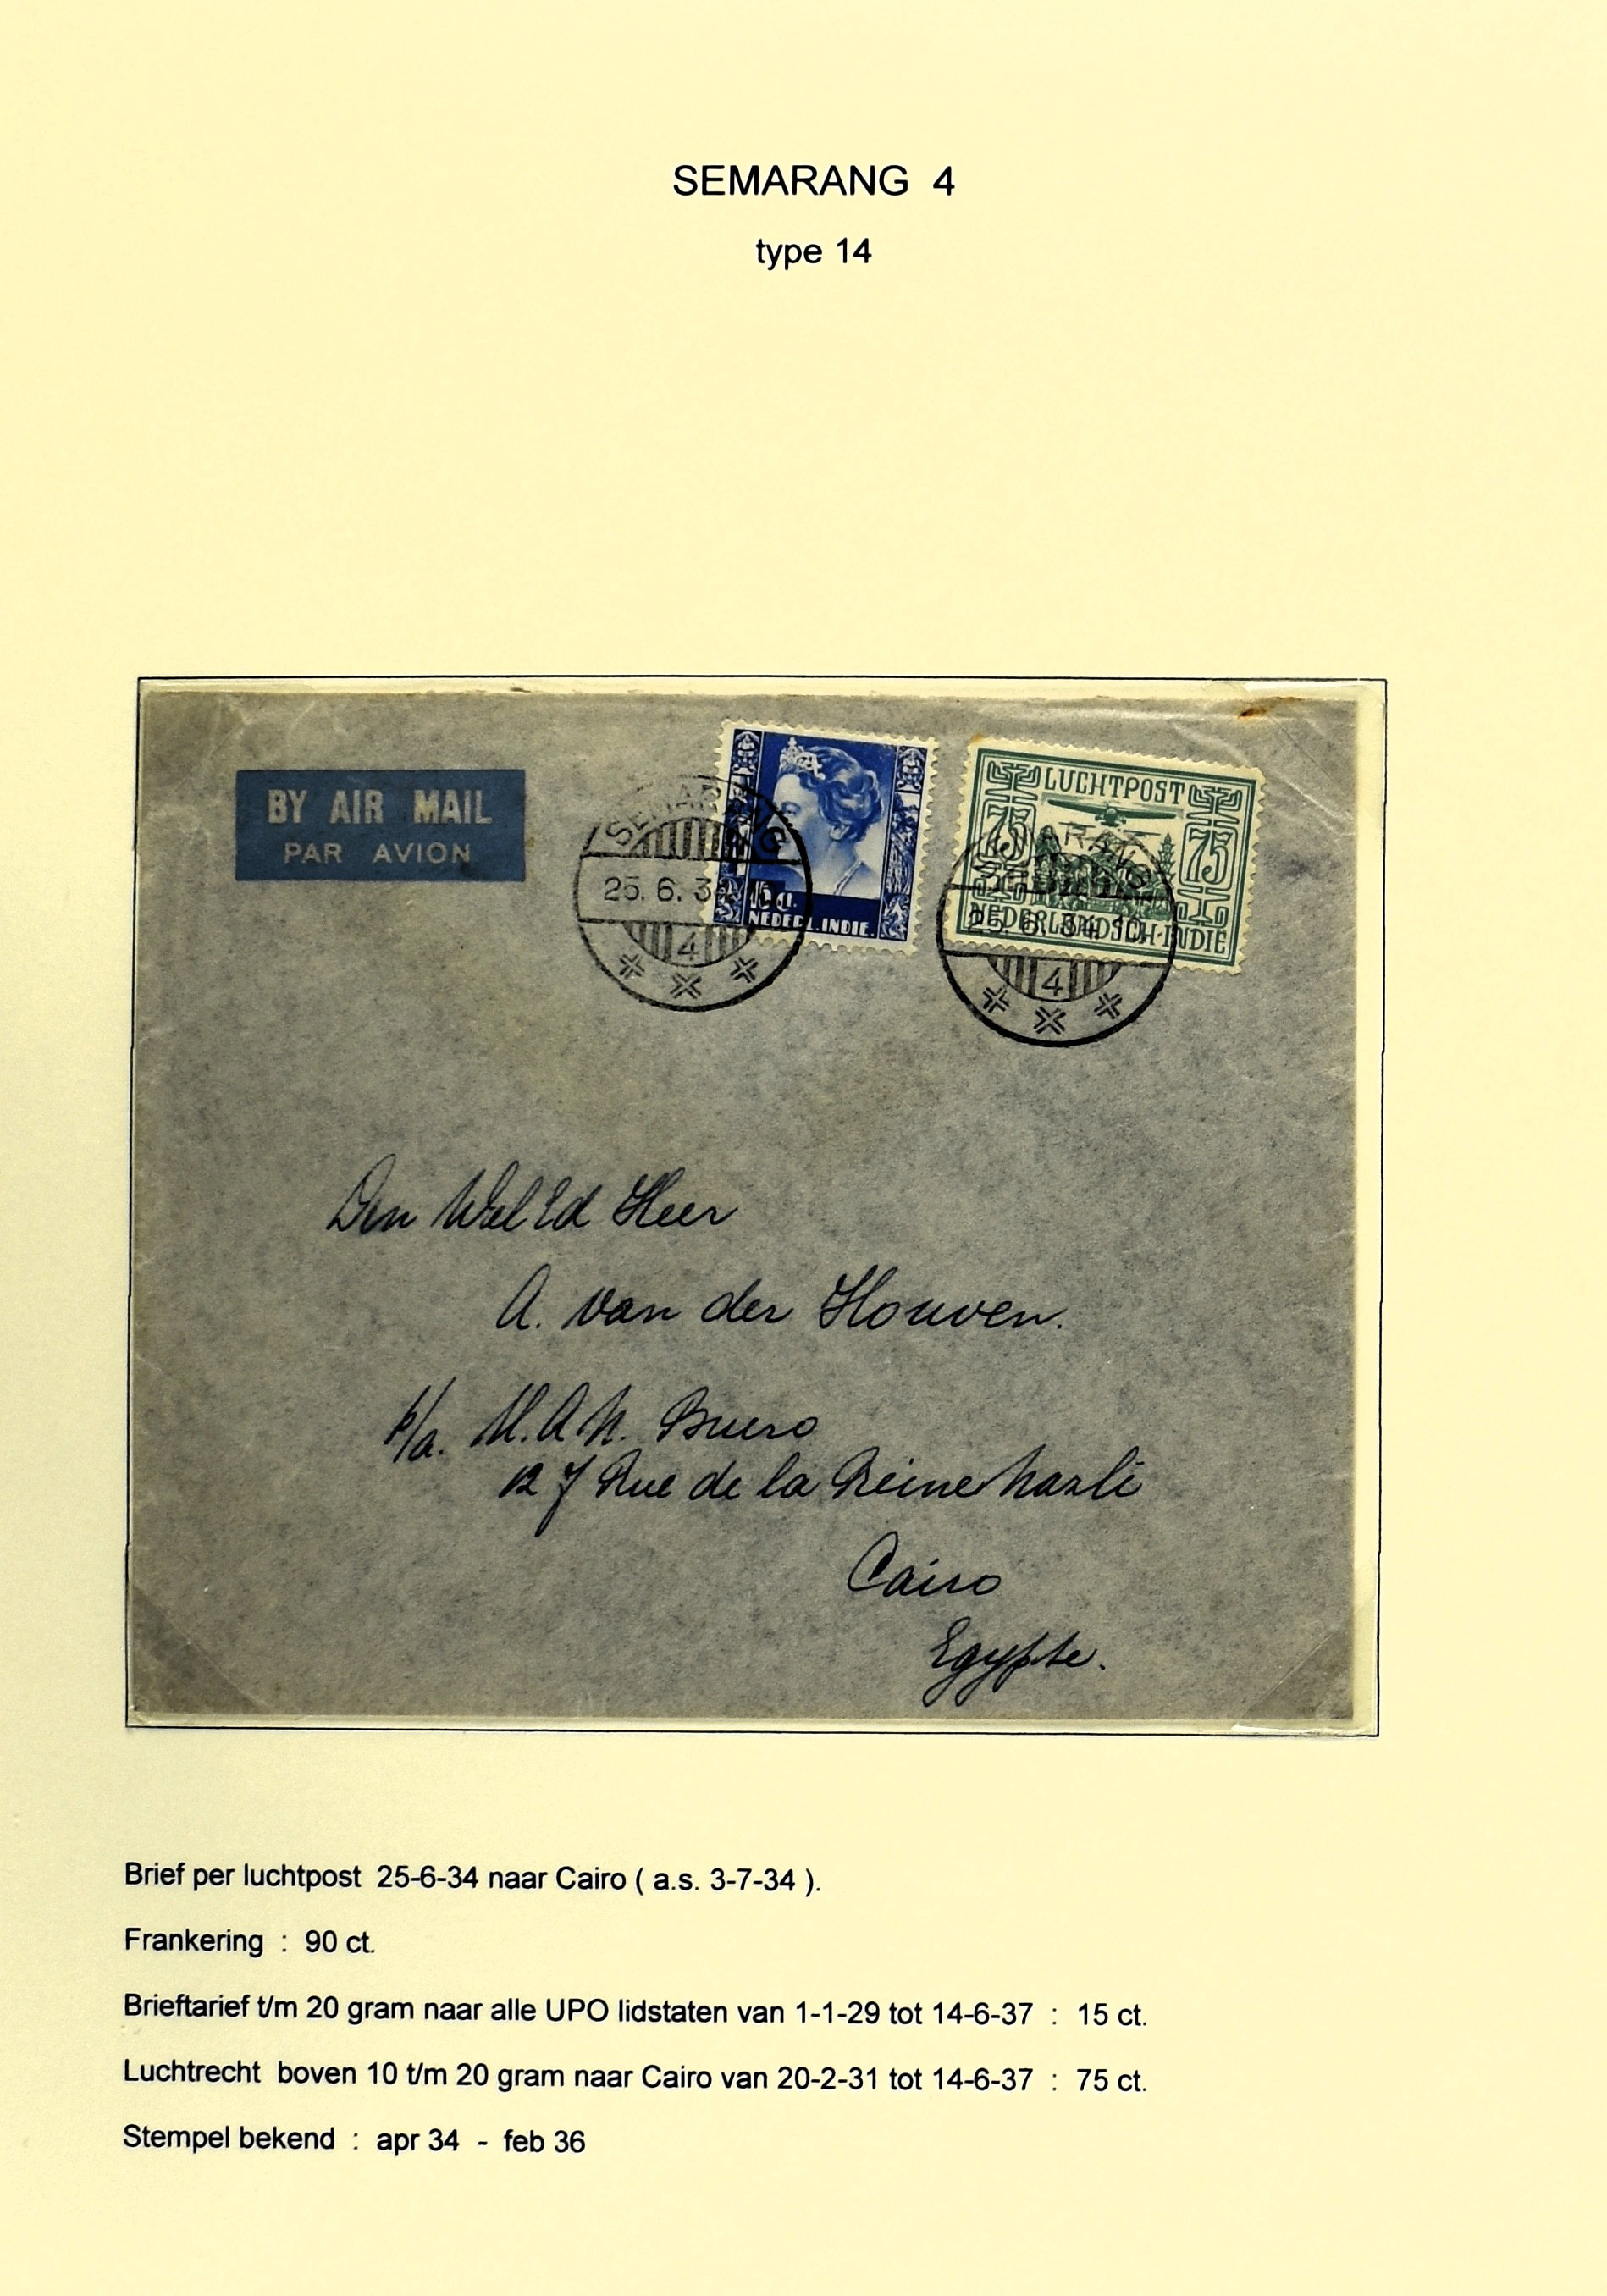 SEMARANG 4
type 14
BY AIR MAIL
PAR AVION
SEMARANG
25. 6. 34
4
15 ct.
NEDERL. INDIE.
LUCHTPOST
75 75
NEDERLANDSCH-INDIE
SEMARANG
25. 6. 34 10
4
Den WelEd Heer
A. van der Houven.
p/a. M.A.N. Buero
127 Rue de la Reine Nazli
Cairo
Egypte.
Brief per luchtpost 25-6-34 naar Cairo ( a.s. 3-7-34 ).
Frankering : 90 ct.
Brieftarief t/m 20 gram naar alle UPO lidstaten van 1-1-29 tot 14-6-37 : 15 ct.
Luchtrecht boven 10 t/m 20 gram naar Cairo van 20-2-31 tot 14-6-37 : 75 ct.
Stempel bekend : apr 34 - feb 36